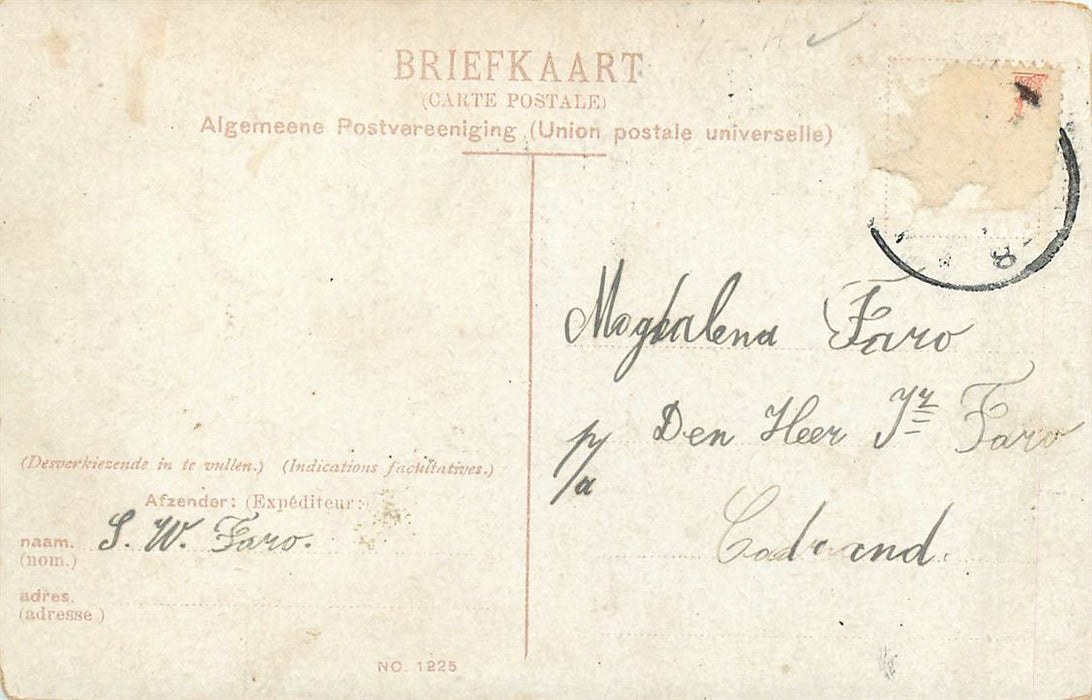 BRIEFKAART
(CARTE POSTALE)
Algemeene Postvereeniging (Union postale universelle)
Magdalena Faro
p/a Den Heer Jz Faro
Cadzand.
(Desverkiezende in te vullen.) (Indications facultatives.)
Afzender: (Expéditeur:
naam. S. W. Faro.
(nom.)
adres.
(adresse)
NO. 1225
8